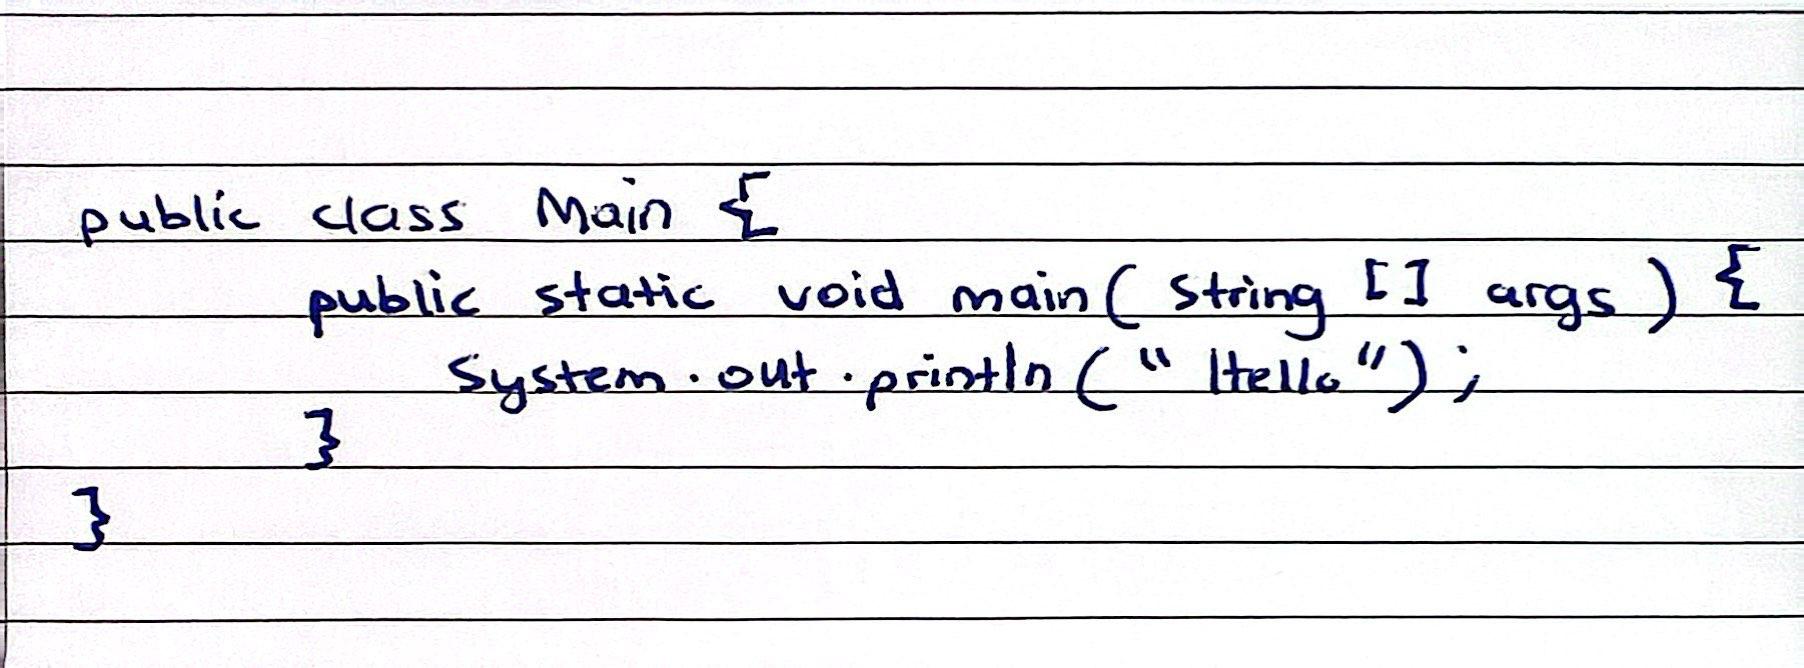 public class Main {
public static void main( String [] args ) {
System.out.println ( " Hello " ) ;
}
}